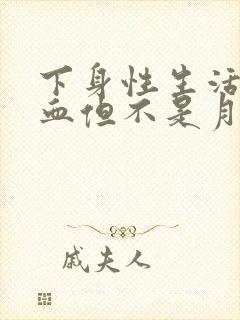 下身性生活
血但不是月
戚夫人